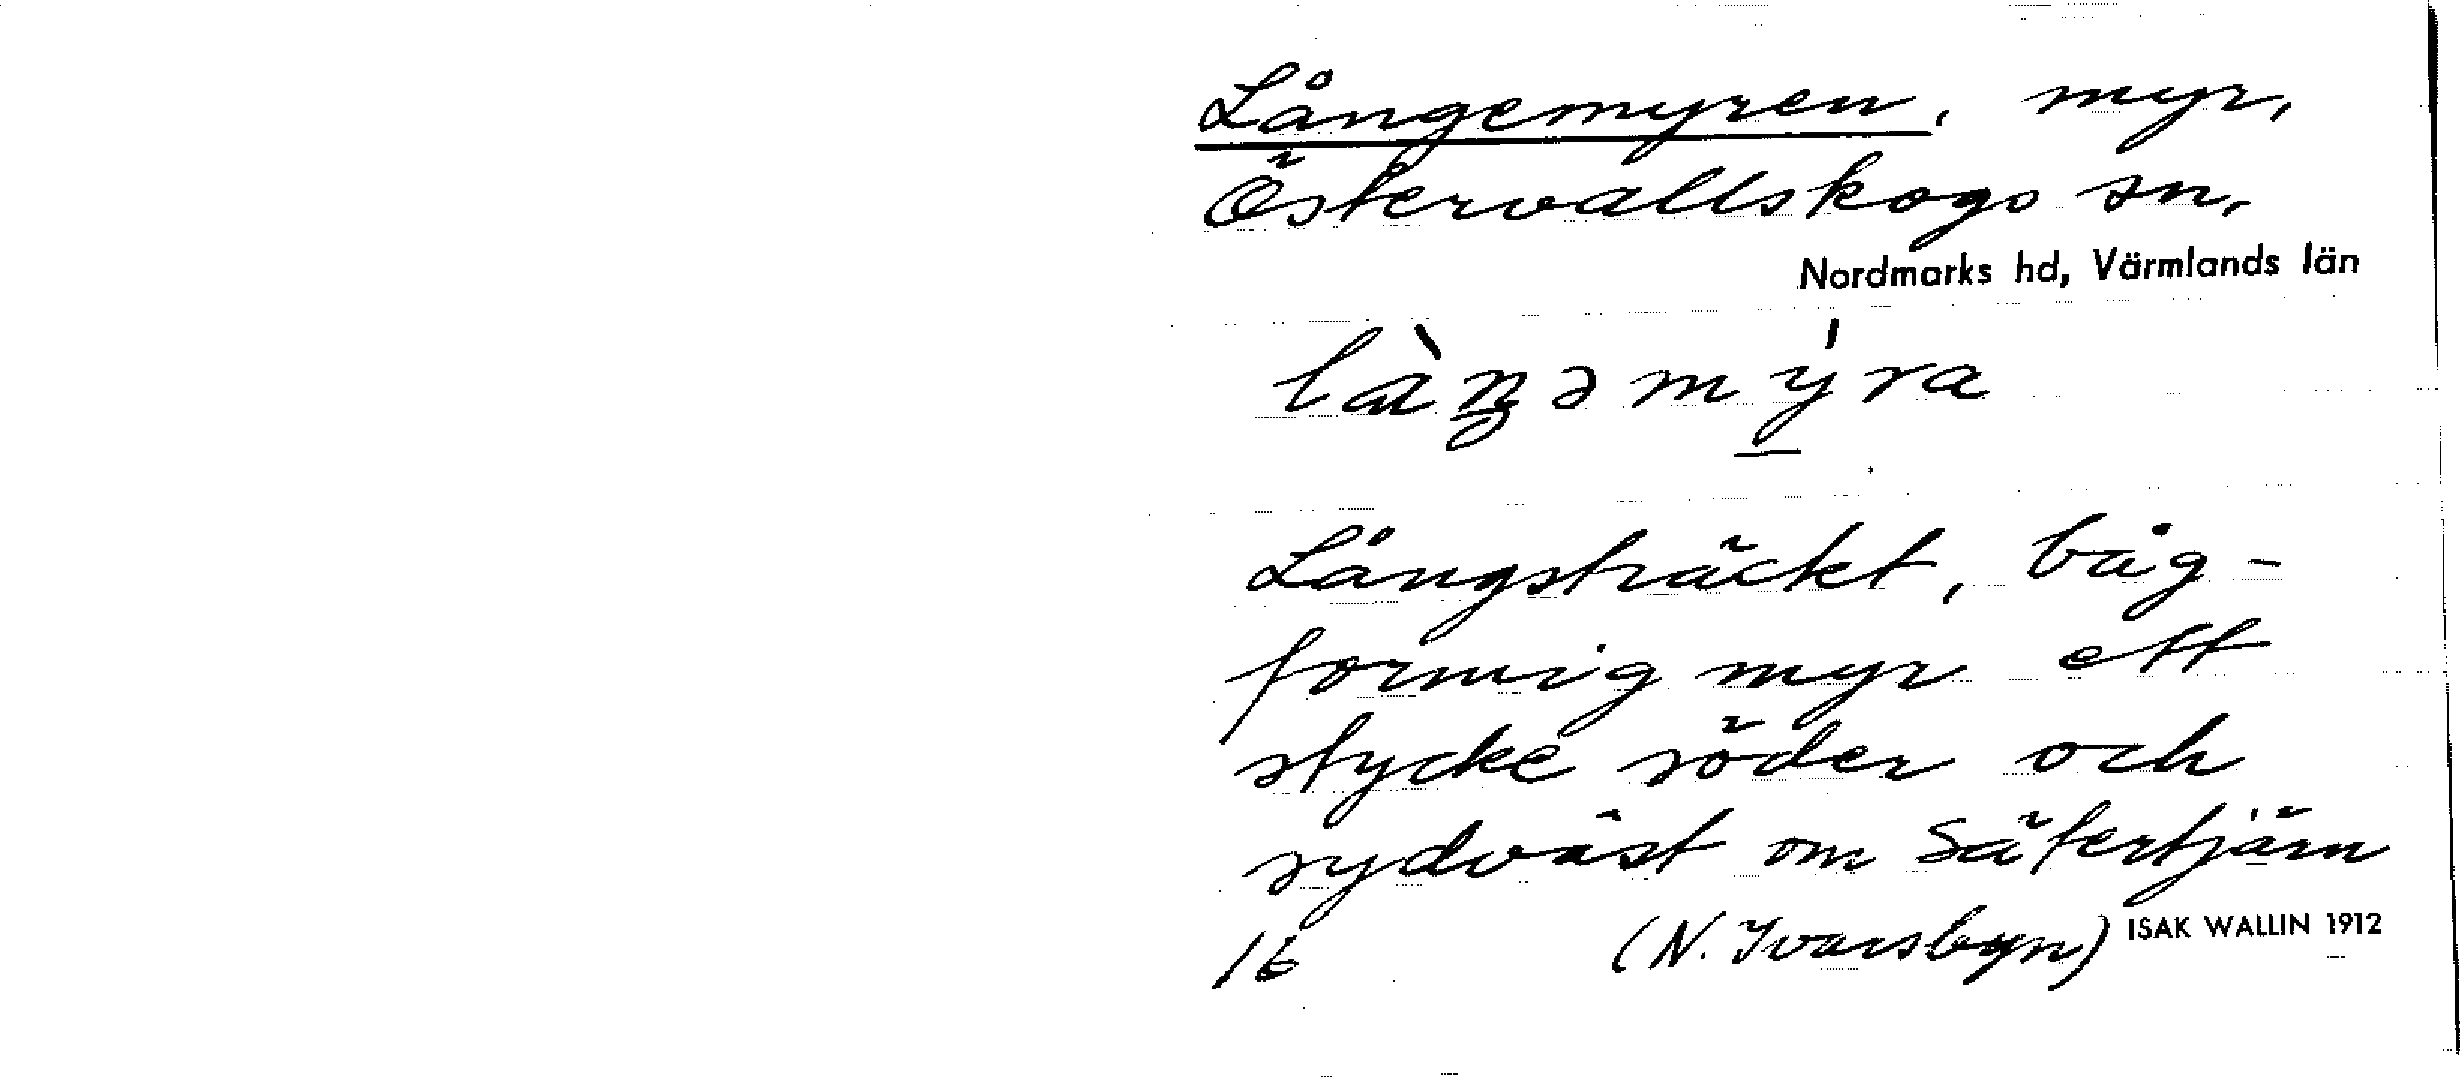 Långemyren, myr,
Östervallskogs sn,
Nordmarks hd, Värmlands län
làŋəmý̱ra
Långsträckt, båg-
formig myr ett
stycke söder och
sydväst om Sätertjärn
16 (N. Ivarsbyn) ISAK WALLIN 1912